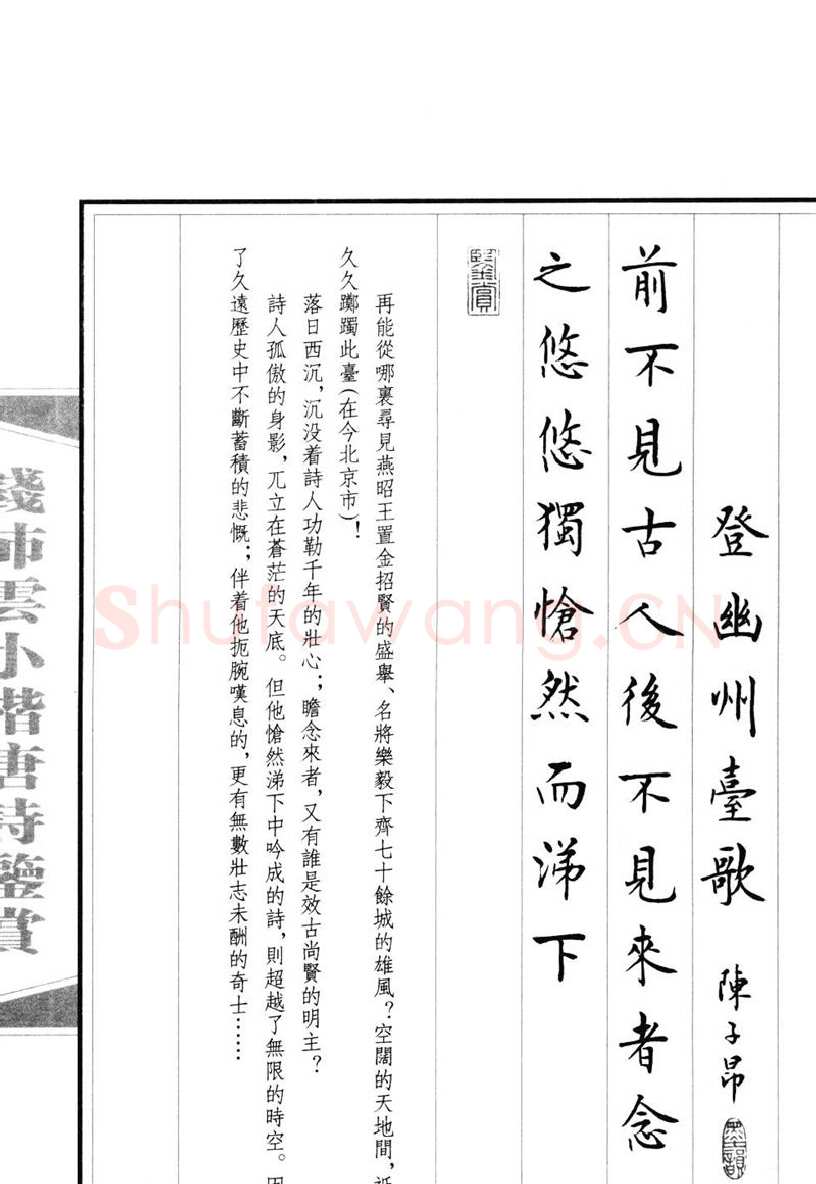 登幽州臺歌 陳子昂
前不見古人後不見來者念
之悠悠獨愴然而涕下
鑒賞
再能從哪裏尋見燕昭王置金招賢的盛舉、名將樂毅下齊七十餘城的雄風？空闊的天地間，
久久躑躅此臺（在今北京市）！
落日西沉，沉没着詩人功勒千年的壯心；瞻念來者，又有誰是效古尚賢的明主？
詩人孤傲的身影，兀立在蒼茫的天底。但他愴然涕下中吟成的詩，則超越了無限的時空。因
了久遠歷史中不斷蓄積的悲慨；伴着他扼腕嘆息的，更有無數壯志未酬的奇士……
錢沛雲小楷唐詩鑒賞
Shufawang.CN